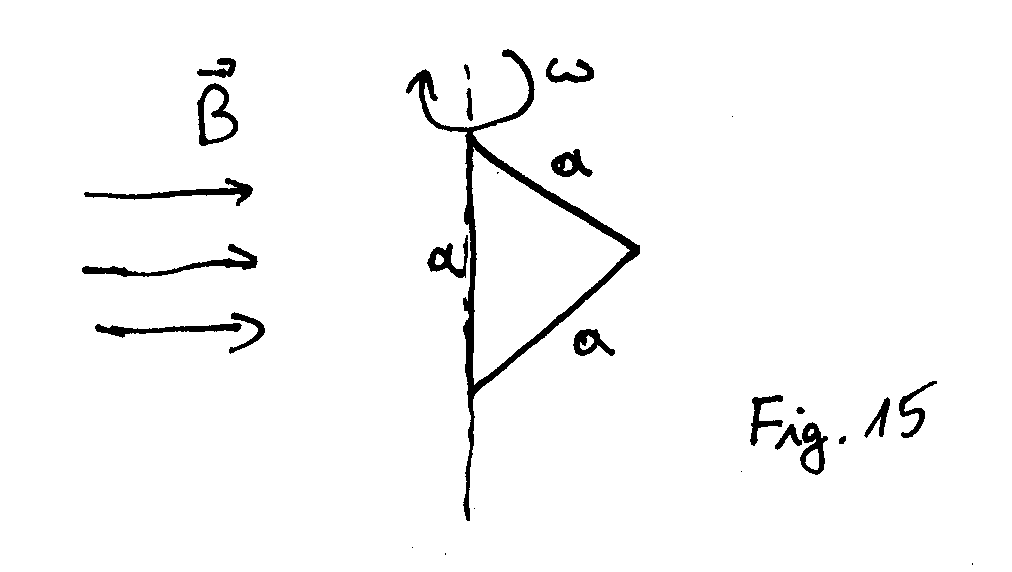 B⃗
ω
a
a
a
Fig. 15